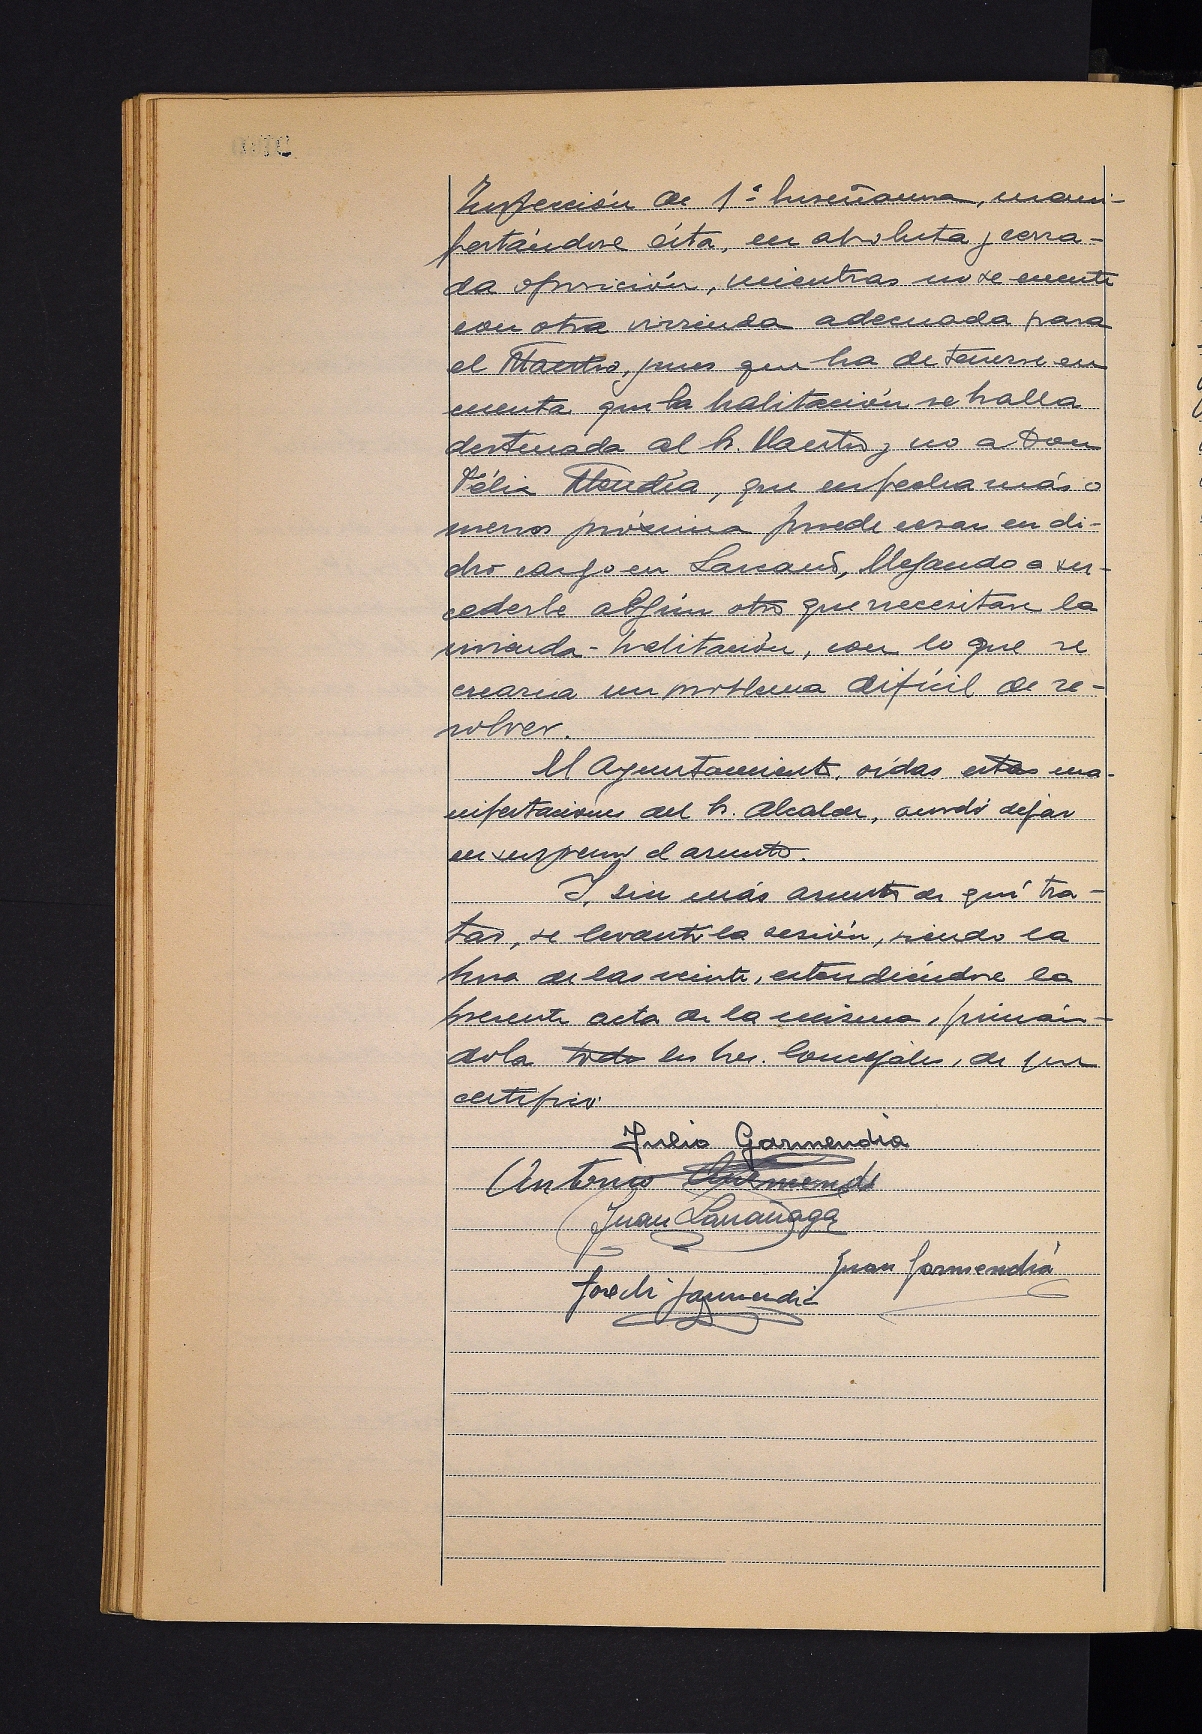 Inspección de 1ª Enseñanza, mani-
festándose ésta, en absoluta y cerra-
da oposición, mientras no se cuente
con otra vivienda adecuada para
el Maestro, pues que ha de tenerse en
cuenta que la habitación se halla
destinada al Sr. Maestro y no a Don
Félix Mendía, que en fecha más o
menos próxima puede cesar en di-
cho cargo en Larraul, llegando a su-
cederle algún otro que necesitare la
vivienda-habitación, con lo que se
crearía un problema difícil de re-
solver.
El Ayuntamiento, oídas estas ma-
nifestaciones del Sr. Alcalde, acordó dejar
en suspenso el asunto.
Y, sin más asuntos de qué tra-
tar, se levantó la sesión, siendo la
hora de las veinte, extendiéndose la
presente acta de la misma, firmán-
dola todos los Sres. Concejales, de que
certifico.
Julio Garmendia
Antonio
Juan Larrañaga
Juan Garmendia
José Mª Garmendia